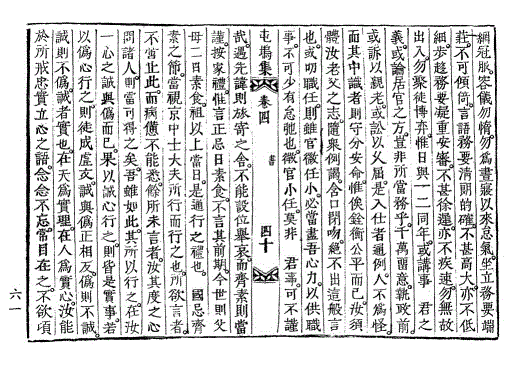 網冠服容儀勿惰勿爲晝寢以來怠氣坐立務要端
莊不可傾倚言語務要淸朗的確不甚高大亦不低
細步趨務要凝重安審不甚徐遲亦不疾速勿無故
出入勿聚徒博奕惟日與一二同年或講事君之
義或論居官之方豈非所當務乎千萬留意就政前
或訴以親老或訟以久屈是入仕者通例人不爲怪
而其中識者則守分安命惟俟銓衡公平而已汝須
體汝老父之志隨衆例謁含口閉吻絶不出這般言
也或叨職任則雖官微任小必當盡吾心力以供職
事不可少有怠弛也微官小任莫非 君事可不謹
屯塢集 卷四 書 四十
哉遇先諱則旅寄之舍不能設位擧哀而齊素則當
謹按家禮惟言正忌日素食不言其前期今世則父
母二日素食祖以上當日是通行之禮也 國忌齊
素之節當視京中士大夫所行而行之也所欲言者
不啻止此而病憊不能悉餘所未言者汝其度之心
問諸人則當可得之矣吾雖如此其所以行之在汝
一心之誠與僞而已果以誠心行之則皆是實事若
以僞心行之則徒成虛文誠與僞正相反僞則不誠
誠則不僞誠者實也在天爲實理在人爲實心汝能
於所戒忠實立心之語念念不忘常目在之不欲頃
六一